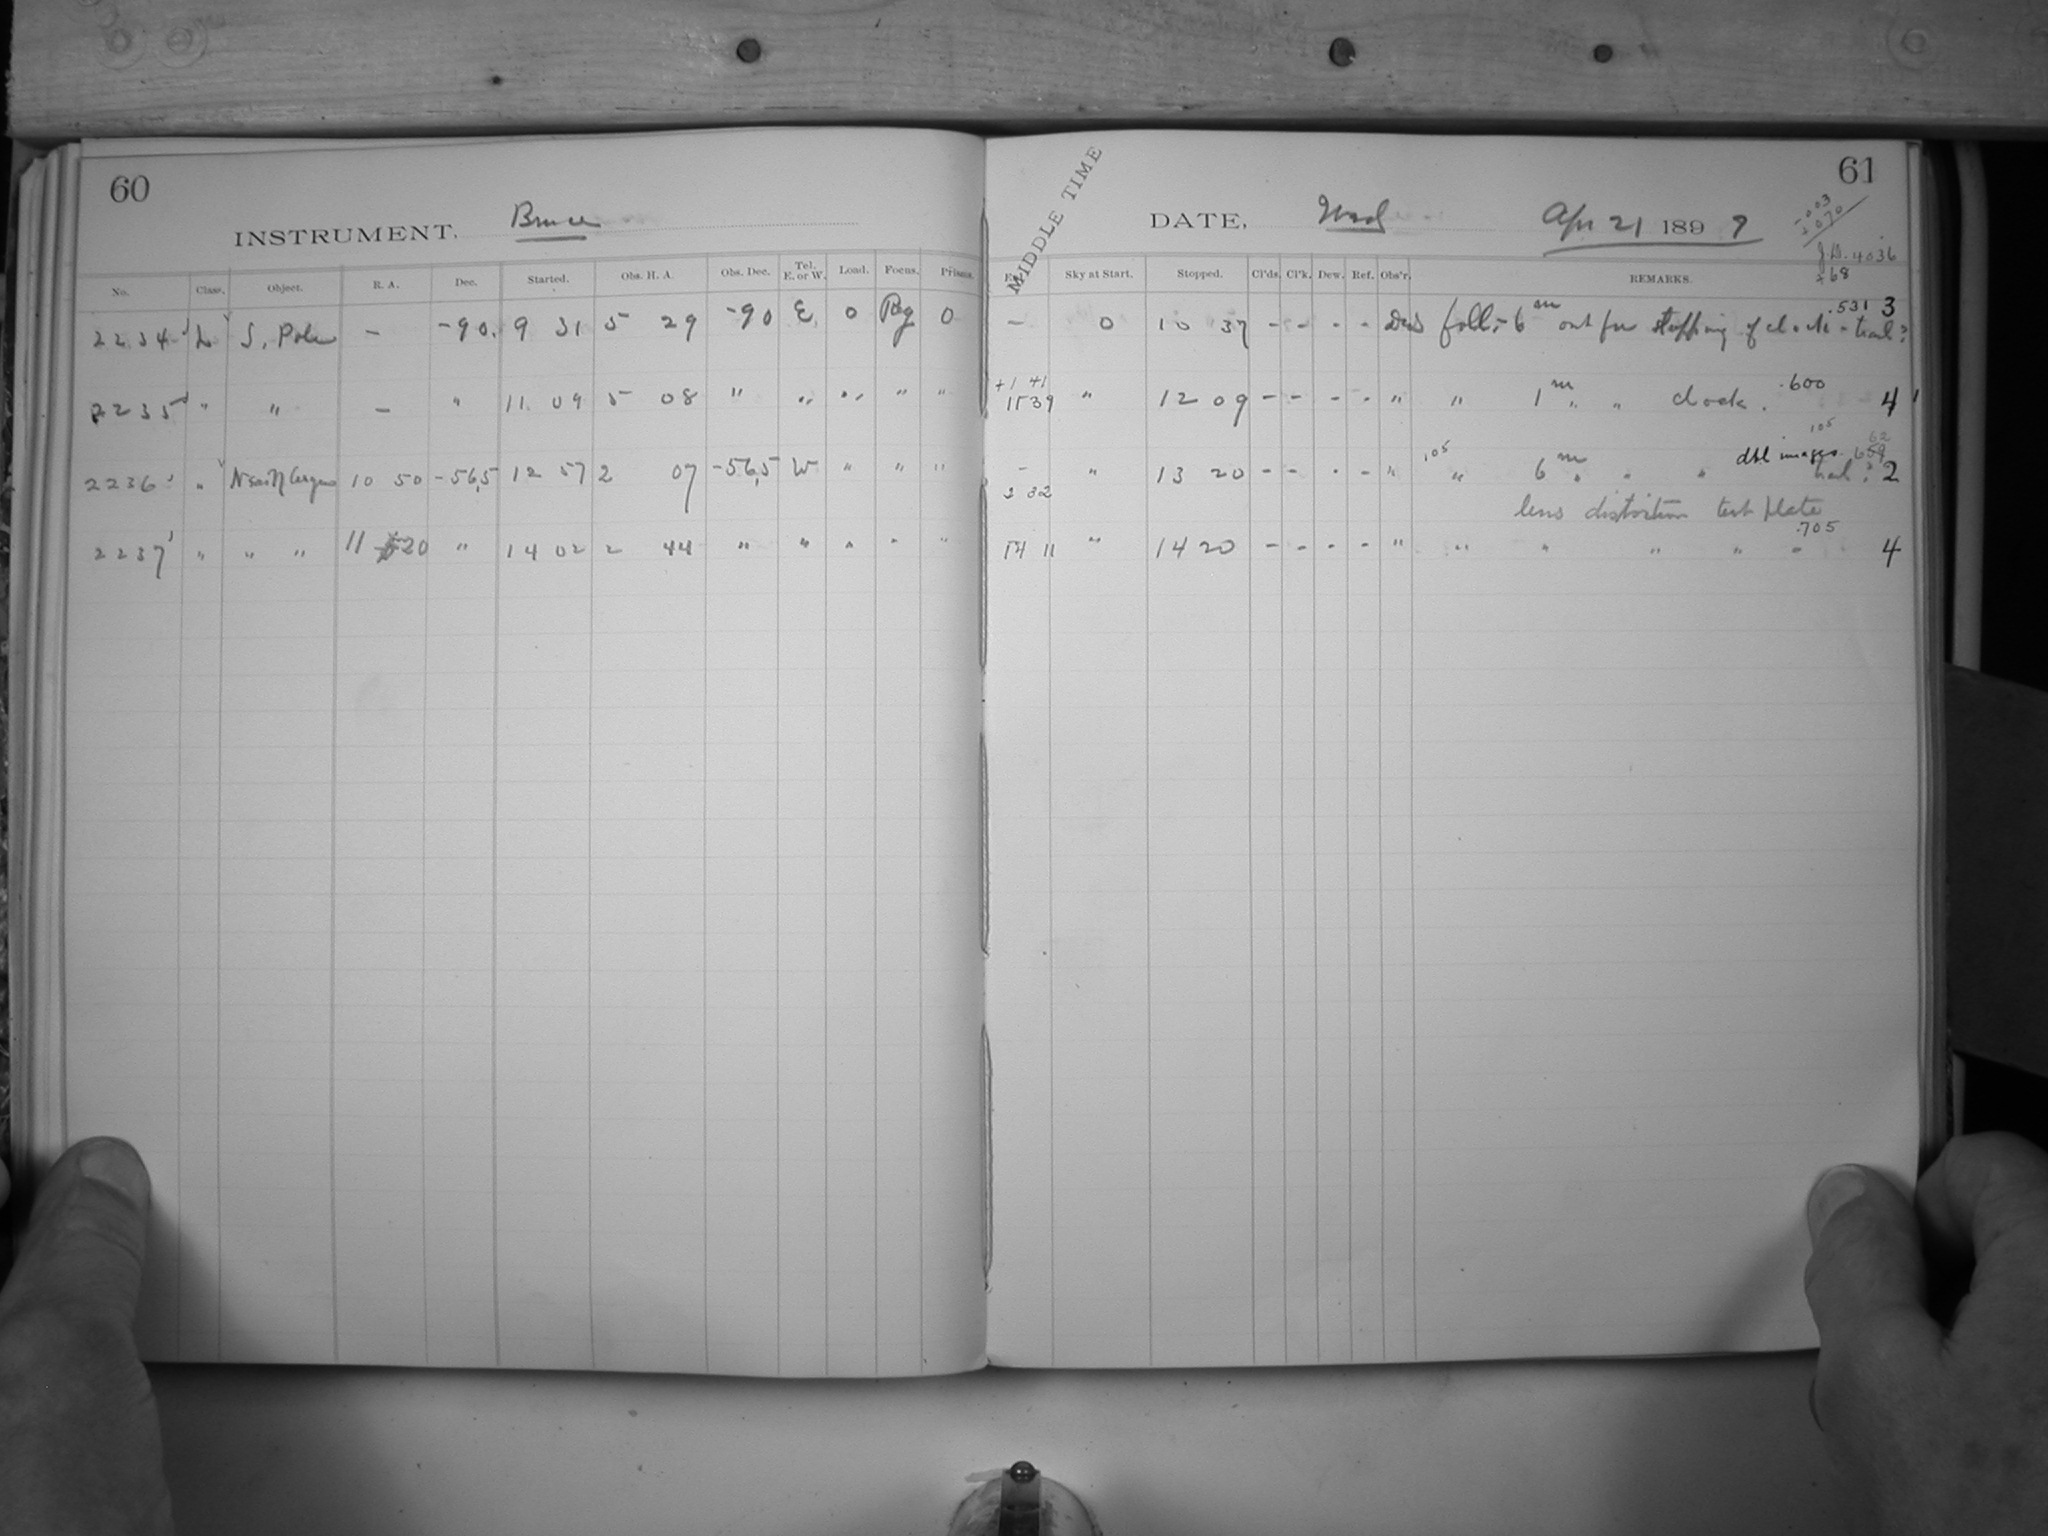 60
INSTRUMENT, Bruce
No. Class. Object. R. A. Dec. Started. Obs. H. A. Obs. Dec. Tel. E. or W. Load. Focus. Prisms.
2234 L S. Pole — -90. 9 31 5 29 -90 E 0 Reg 0
2235 " " — " 11 09 5 08 " " " " "
2236 " Near η Argus 10 50 -56,5 12 57 2 07 -56,5 W " " "
2237 " " " 11 20 " 14 02 2 44 " " " " "
61
MIDDLE TIME
DATE, Wed Apr 21 1897
J.D. 4036
+68
Sky at Start. Stopped. Cl'ds. Cl'k. Dew. Ref. Obs'r. REMARKS.
.531 3
— 0 10 37 - - - - foll. 6 m out for stopping of clock - trail?
+1 41 .600
11 39 " 12 09 - - - - " " 1 m " " clock. 4
105
105 dbl images.
- " 13 20 - - - - " " 6 m " " " trail? 2
2 32
lens distortion test plate
.705
14 11 " 14 20 - - - - " " " " " " 4